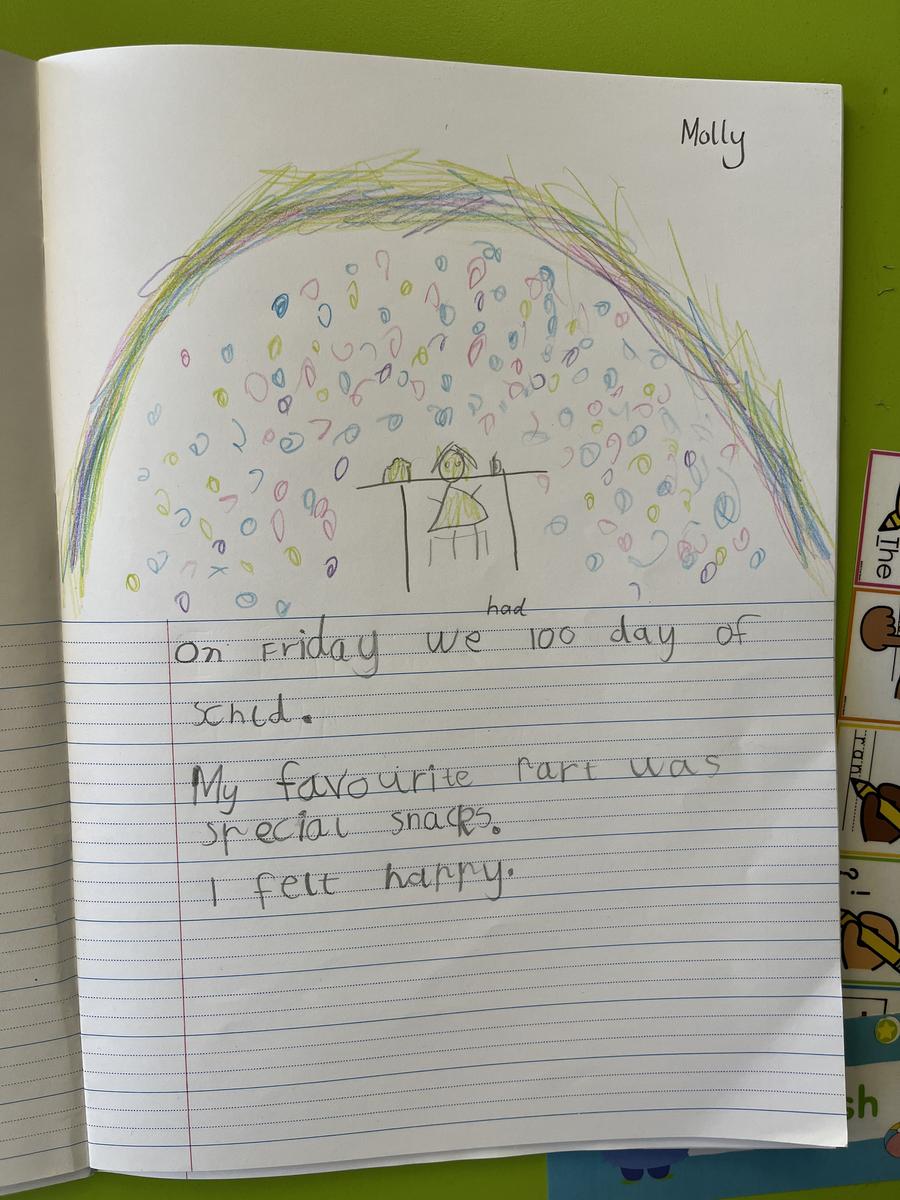 Molly
had
On Friday we 100 day of
schol.
My favourite Part was
special snacks.
I felt happy.
The
ran
? !
sh